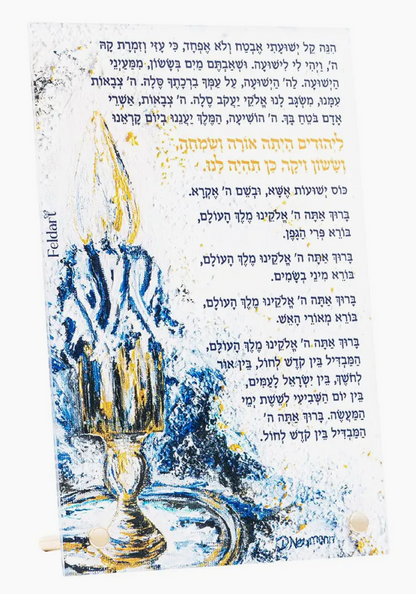 הִנֵּה קֵל יְשׁוּעָתִי אֶבְטַח וְלֹא אֶפְחָד, כִּי עָזִּי וְזִמְרָת קָהּ
ה', וַיְהִי לִי לִישׁוּעָה. וּשְׁאַבְתֶּם מַיִם בְּשָׂשׂוֹן, מִמַּעַיְנֵי
הַיְשׁוּעָה. לַה' הַיְשׁוּעָה, עַל עַמְּךָ בִרְכָתֶךָ סֶּלָה. ה' צְבָאוֹת
עִמָּנוּ, מִשְׂגָּב לָנוּ אֱלֹקֵי יַעֲקֹב סֶלָה. ה' צְבָאוֹת, אַשְׁרֵי
אָדָם בֹּטֵחַ בָּךְ. ה' הוֹשִׁיעָה, הַמֶּלֶךְ יַעֲנֵנוּ בְיוֹם קָרְאֵנוּ
לַיְּהוּדִים הָיְתָה אוֹרָה וְשִׂמְחָה,
וְשָׂשׂוֹן וִיקָר כֵּן תִּהְיֶה לָנוּ.
כּוֹס יְשׁוּעוֹת אֶשָּׂא, וּבְשֵׁם ה' אֶקְרָא.
בָּרוּךְ אַתָּה ה' אֱלֹקֵינוּ מֶלֶךְ הָעוֹלָם,
בּוֹרֵא פְּרִי הַגֶּפֶן.
בָּרוּךְ אַתָּה ה' אֱלֹקֵינוּ מֶלֶךְ הָעוֹלָם,
בּוֹרֵא מִינֵי בְשָׂמִים.
בָּרוּךְ אַתָּה ה' אֱלֹקֵינוּ מֶלֶךְ הָעוֹלָם,
בּוֹרֵא מְאוֹרֵי הָאֵשׁ.
בָּרוּךְ אַתָּה ה' אֱלֹקֵינוּ מֶלֶךְ הָעוֹלָם,
הַמַּבְדִּיל בֵּין קֹדֶשׁ לְחוֹל, בֵּין אוֹר
לְחֹשֶׁךְ, בֵּין יִשְׂרָאֵל לָעַמִּים,
בֵּין יוֹם הַשְּׁבִיעִי לְשֵׁשֶׁת יְמֵי
הַמַּעֲשֶׂה. בָּרוּךְ אַתָּה ה'
הַמַּבְדִּיל בֵּין קֹדֶשׁ לְחוֹל.
Feldart
אש